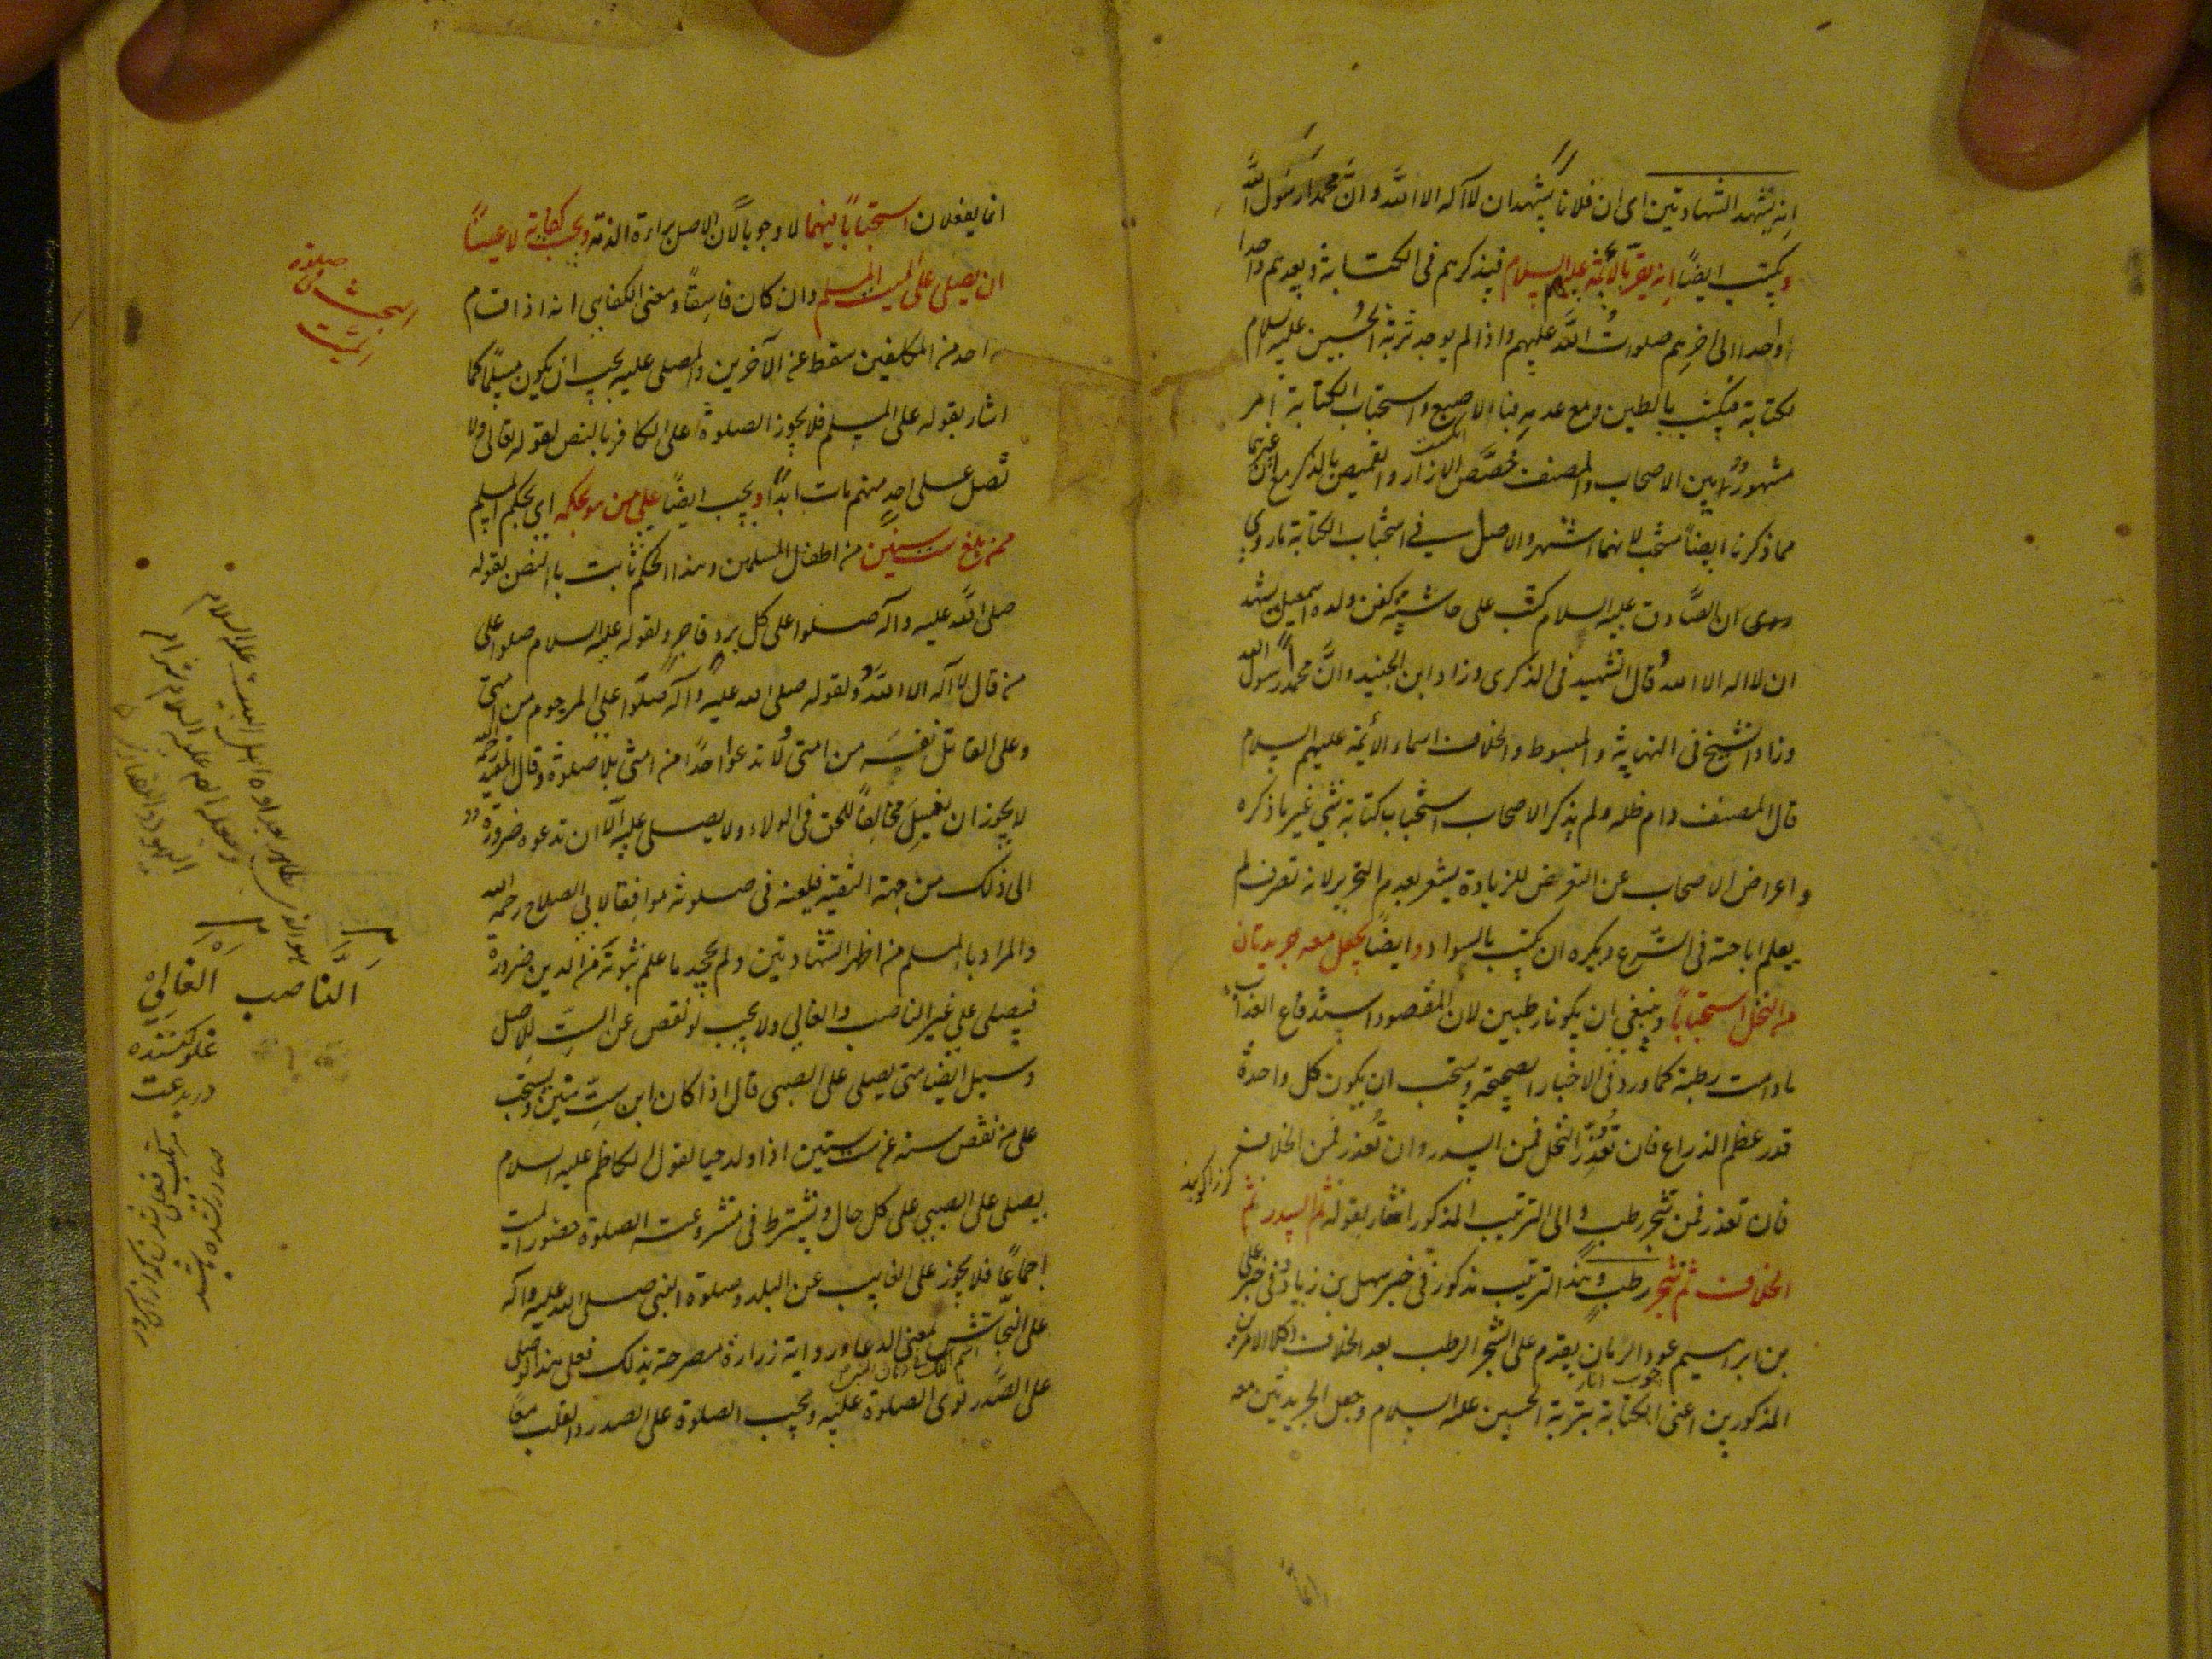 انه يشهد الشهادتين اى ان فلانا يشهد ان لا اله الا الله وان محمدا رسول الله
ويكتب ايضا انه يقر بالائمة عليهم السلام فيذكرهم فى الكتابة ويعدهم واحدا
واحدا الى اخرهم صلوات الله عليهم واذا لم يوجد تربة الحسين عليه السلام
لكتابة فيكتب بالطين ومع عدمه فبالاصبع واستحباب الكتابة امر
مشهور بين الاصحاب والمصنف خصص الازار والقميص بالذكر مع ان غيرهما
مما ذكرنا ايضا مستحب لانهما اشهر والاصل فى استحباب الكتابة ما روى
روى ان الصادق عليه السلام كتب على حاشية كفن ولده اسمعيل يشهد
ان لا اله الا الله قال الشهيد فى الذكرى وزاد ابن الجنيد وان محمدا رسول الله
وزاد الشيخ فى النهاية والمبسوط والخلاف اسماء الائمة عليهم السلام
قال المصنف دام ظله ولم يذكر الاصحاب استحباب كتابة شئ غير ما ذكره
واعراض الاصحاب عن التعرض للزيادة يشعر بعدم التحرير لانه تصرف لم
يعلم اباحته فى الشرع ويكره ان يكتب بالسواد وايضا يجعل معه جريدتان
من النخل استحبابا وينبغى ان يكونا رطبين لان المقصود استدفاع العذاب
ما دامت رطبة كما ورد فى الاخبار الصحيحة ويستحب ان يكون كل واحدة
قدر عظم الذراع فان تعذر النخل فمن السدر وان تعذر فمن الخلاف
فان تعذر فمن شجر رطب والى الترتيب المذكور اشار بقوله ثم السدر ثم
الخلاف ثم شجر رطب وهذا الترتيب مذكور فى خبر سهل بن زياد وفى خبر على
بن ابراسيم عود الرمان يقدم على الشجر الرطب بعد الخلاف وكلا الامرين
چوب انار
المذكورين اعنى الكتابة بتربة الحسين عليه السلام وجعل الجريدتين معه
انما يفعلان استحبابا فيهما لا وجوبا لان الاصل براءة الذمة ويجب كفاية لا عينا
ان يصلى على الميت المسلم وان كان فاسقا ومعنى الكفايى انه اذا قام
به احد من المكلفين سقط عن الآخرين والمصلى عليه يجب ان يكون مسلما كما
اشار بقوله على المسلم فلا يجوز الصلوة على الكافر بالنص لقوله تعالى ولا
تصل على احد منهم مات ابدا ويجب ايضا على من هو بحكمه اى بحكم المسلم
ممن بلغ ست سنين من اطفال المسلمين وهذا الحكم ثابت بالنص لقوله
صلى الله عليه وآله صلوا على كل بر وفاجر ولقوله عليه السلام صلوا على
من قال لا اله الا الله ولقوله صلى الله عليه وآله صلوا على المرجوم من امتى
وعلى القاتل نفسه من امتى لا تدعوا احدا من امتى بلا صلوة وقال المفيد رحمه الله
لا يجوز ان يغسل مخالفا للحق فى الولاء ولا يصلى عليه الا ان تدعوه ضرورة
الى ذلك من جهة التقية فيلعنه فى صلوته موافقا لابى الصلاح رحمه الله
والمراد بالمسلم من اظهر الشهادتين ولم يجحد ما علم ثبوته من الدين ضرورة
فيصلى على غير الناصب والغالى ولا يجب لو نقص عن الست للاصل
وسيل ايضا متى يصلى على الصبى قال اذا كان ابن ست سنين ويستحب
على من نقص سنه عن ست سنين اذا ولد حيا لقول الكاظم عليه السلام
يصلى على الصبى على كل حال ويشترط فى مشروعية الصلوة حضور الميت
اجماعا فلا يجوز على الغايب عن البلد وصلوة النبى صلى الله عليه وآله
على النجاشى بمعنى الدعا ورواية زرارة مصرحة بذلك فعلى هذا لو صلى
على الصدر نوى الصلوة عليه ويجب الصلوة على الصدر والقلب معا
البحث صلوة
الميت
الناصب
الغالى
غلو كننده
در بدعت